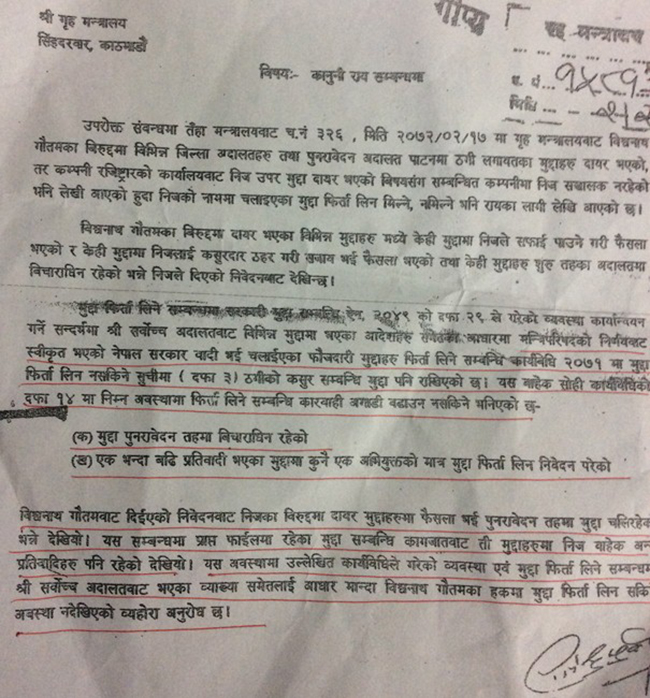 श्री गृह मन्त्रालय
सिंहदरवार, काठमाडौं
गोप्य
गृह मन्त्रालय
विषयः- कानुनी राय सम्बन्धमा
मिति
उपरोक्त संवन्धमा तँहा मन्त्रालयवाट च.नं ३२६ , मिति २०७२/०२/१७ मा गृह मन्त्रालयवाट विश्वनाथ
गौतमका बिरुद्दमा विभिन्न जिल्ला अदालतहरु तथा पुनरावेदन अदालत पाटनमा ठगी लगायतका मुद्दाहरु दायर भएको,
तर कम्पनी रजिष्ट्रारको कार्यालयवाट निज उपर मुद्दा दायर भएको बिषयसंग सम्बन्धित कम्पनीमा निज सञ्चालक नरहेको
भनि लेखी आएको हुदा निजको नाममा चलाइएका मुद्दा फिर्ता लिन मिल्ने, नमिल्ने भनि रायका लागी लेखि आएको छ।
विश्वनाथ गौतमका बिरुद्दमा दायर भएका विभिन्न मुद्दाहरु मध्ये केही मुद्दामा निजले सफाई पाउने गरी फैसला
भएको र केही मुद्दामा निजलाई कसुरदार ठहर गरी सजाय भई फैसला भएको तथा केही मुद्दाहरु शुरु तहका अदालतमा
बिचाराधिन रहेको भन्ने निजले दिएको निवेदनबाट देखिन्छ।
मुद्दा फिर्ता लिने सम्बन्धमा सरकारी मुद्दा सम्बन्धि ऐन, २०४९ को दफा २९ ले गरेको व्यवस्था कार्यान्वयन
गर्ने सन्दर्भमा श्री सर्वोच्च अदालतवाट विभिन्न मुद्दामा भएका आदेशहरु समेतका आधारमा मन्त्रिपरिषदको निर्णयवाट
स्वीकृत भएको नेपाल सरकार वादी भई चलाईएका फौजदारी मुद्दाहरु फिर्ता लिने सम्बन्धि कार्यविधि २०७१ मा मुद्दा
फिर्ता लिन नसकिने सुचीमा ( दफा ३) ठगीको कसुर सम्बन्धि मुद्दा पनि राखिएको छ। यस बाहेक सोही कार्यविधिको
दफा १४ मा निम्न अवस्थामा फिर्ता लिने सम्बन्धि कारवाही अगाडी वढाउन नसकिने भनिएको छ-
(क) मुद्दा पुनरावेदन तहमा बिचाराधिन रहेको
(ख) एक भन्दा बढि प्रतिवादी भएका मुद्दामा कुनै एक अभियुक्तको मात्र मुद्दा फिर्ता लिन निवेदन परेको
विश्वनाथ गौतमवाट दिईएको निवेदनवाट निजका बिरुद्दमा दायर मुद्दाहरुमा फैसला भई पुनरावेदन तहमा मुद्दा चलिरहेक
भन्ने देखियो। यस सम्बन्धमा प्राप्त फाईलमा रहेका मुद्दा सम्बन्धि कागजातवाट ती मुद्दाहरुमा निज बाहेक अन
प्रतिवादिहरु पनि रहेको देखियो। यस अवस्थामा उल्लेखित कार्यविधिले गरेको व्यवस्था एवं मुद्दा फिर्ता लिने सम्बन्धम
श्री सर्वोच्च अदालतवाट भएका व्याख्या समेतलाई आधार मान्दा विश्वनाथ गौतमका हकमा मुद्दा फिर्ता लिन सकि
अवस्था नदेखिएको व्यहोरा अनुरोध छ।